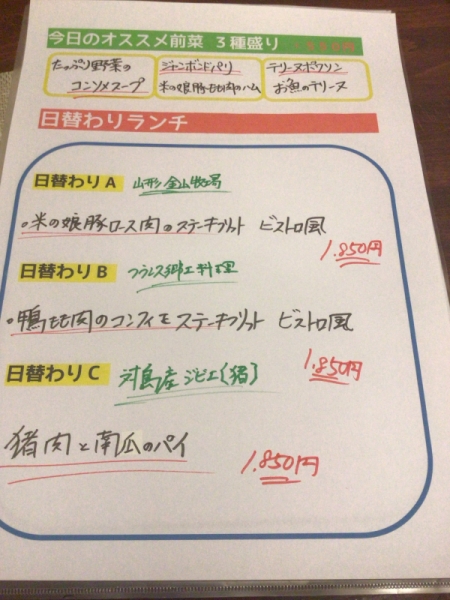 今日のオススメ前菜 3種盛り
たっぷり野菜の
コンソメスープ
ジャンボンドパリ
米の娘豚もも肉のハム
テリーヌポワソン
お魚のテリーヌ
日替わりランチ
日替わりA 山形 金山牧場
・米の娘豚ロース肉のステーキフリット ビストロ風
1.850円
日替わりB フランス郷土料理
・鴨もも肉のコンフィとステーキフリット ビストロ風
1.850円
日替わりC 対島産ジビエ(猪)
猪肉と南瓜のパイ
1.850円